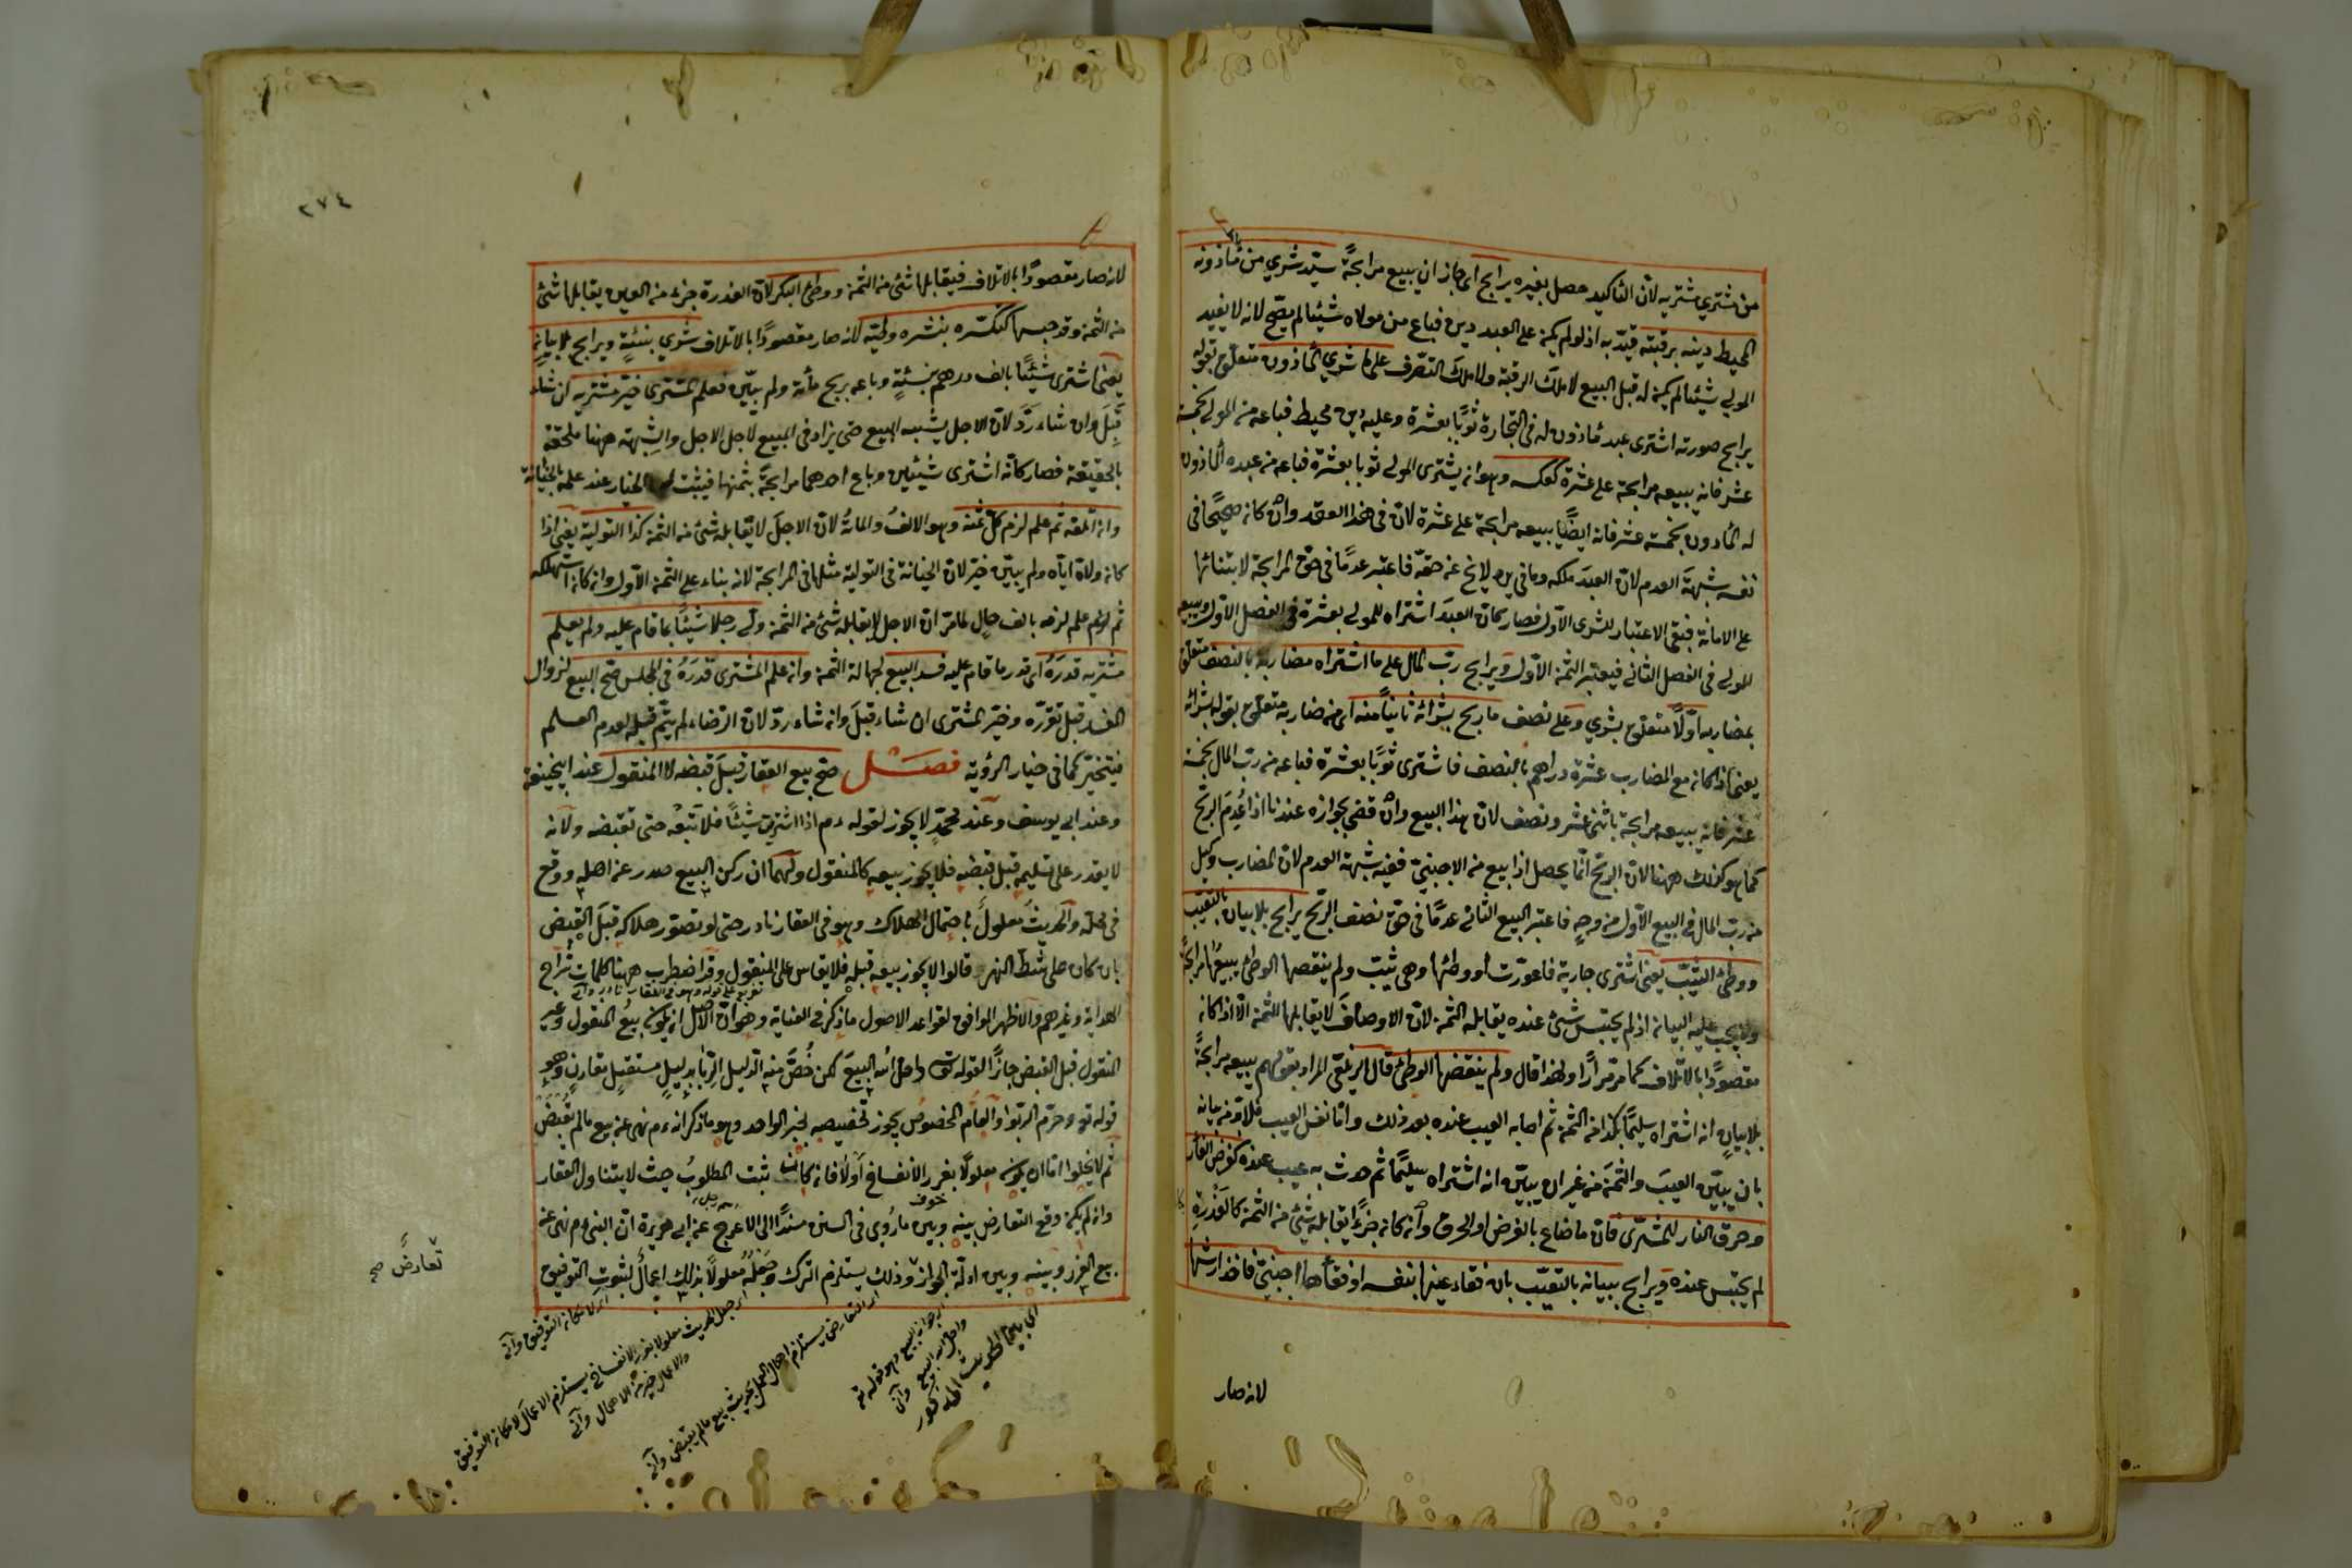 من مشتري مشتريه لان التاكيد حصل بغيره يرابح اى جاز ان يبيع مرابحةً سيّد شري من مأذونه
المحيط دينه برقبته قيّد به اذ لو لم يكن على العبد دين فباع من مولاه شيئا لم يصحّ لانه لا يفيد
المولى شيئا لم يكن له قبل البيع لا ملك الرقبة ولا ملك التصرف على ما شري المأذون متعلّق بقوله
يرابح صورته اشترى عبد مأذون له فى التجارة ثوبًا بعشرة وعليه دين محيط فباعه من المولى بخمسة
عشر فانه يبيعه مرابحة على عشرة كعكسه وهو ان يشترى المولى ثوبا بعشرة فباعه من عبده المأذون
له المأذون بخمسة عشر فانه ايضًا يبيعه مرابحة على عشرة لان فى هذا العقد وان كان صحيحًا فى
نفسه شبهةَ العدم لان العبد ملكه وما فى يده لا يخ عن حقه فاعتبر عدمًا فى حق المرابحة لابتنائها
على الامانة فبقى الاعتبار للشرى الاول فصار كان العبد اشتراه للمولى بعشرة فى الفصل الاول ويبيعه
للمولى فى الفصل الثانى فيعتبر الثمن الاول ويرابح ربّ المال على ما اشتراه مضاربه بالنصف متعلق
بمضاربه اولًا متعلق بشري وعلى نصف ما ربح بشرائه ثانيًا منه اى من مضاربه متعلق بقوله بشرائه
يعنى اذا كان مع المضارب عشرة دراهم بالنصف فاشترى ثوبًا بعشرة فباعه من رب المال بخمسة
عشر فانه يبيعه مرابحة باثنى عشر ونصف لان هذا البيع وان قضى بجوازه عندنا اذا عُدِمَ الربح
كما هو كذلك ههنا لان الربح انما يحصل اذا بيع من الاجنبى ففيه شبهة العدم لان المضارب وكيل
من رب المال فى البيع الاول من وجه فاعتبر البيع الثانى عدمًا فى حق نصف الربح يرابح بلا بيان بالتعيّب
ووطئ الثيّب يعنى اشترى جارية فاعورّت او وطئها وهى ثيّب ولم ينقصها الوطئ يبيعها مرابحةً
ولا يجب عليه البيان اذ لم يحتبس شئ عنده يقابله الثمن لان الاوصاف لا يقابلها الثمن الا اذا كان
مقصودًا بالاتلاف كما مرّ مرارًا ولهذا قال ولم ينقصها الوطئ قال الزيلعى المراد بقولهم يبيعه مرابحةً
بلا بيانٍ انه اشتراه سليمًا بكذا من الثمن ثم اصابه العيب عنده بعد ذلك واما نفس العيب فلا بدّ من بيانه
بان يبيّن العيبَ والثمنَ من غير ان يبيّن انه اشتراه سليمًا ثم حدث به عيب عنده كقرض الفار
وحرق النار للمشترى فان ما ضاع بالقرض او الحرق وان كان جزءًا يقابله شئ من الثمن كالعُذْرة
لم يحتبس عنده ويرابح ببيانه بالتعيّب بان فقاء عينها بنفسه او فقأها اجنبى فاخذ ارشها
لانه صار
٢٧٤
لانه صار مقصودًا بالاتلاف فيقابلها شئ من الثمن ووطئ البكر لان العذرة جزء من العين يقابلها شئ
من الثمن وقد حبسها كتكسّره بنشره وطيّه لانه صار مقصودًا بالاتلاف شُري بنسئةٍ ويرابح بلا بيانٍ
يعنى اشترى شيئًا بالف درهم بنسئةٍ وباعه بربح مأة ولم يبيّن فعلم المشترى خيّر مشتريه ان شاء
قَبِلَ وان شاء ردّ لان الاجل يشبه المبيع حتى يزاد فى المبيع لاجل الاجل والشبهة ههنا ملحقة
بالحقيقة فصار كانّه اشترى شيئين وباع احدهما مرابحة بثمنها فيثبت له الخيار عند علمه بالخيانة
وان اتلفه ثم علم لزم كلّ ثمنه وهو الالفُ والمأةُ لان الاجلَ لا يقابله شئ من الثمن كذا التولية يعنى اذا
كان ولاه اياه ولم يبيّن خيّر لان الخيانة فى التولية مثلها فى المرابحة لانه بناء على الثمن الاول وان كان استهلكه
ثم علم لزمه بالف حالٍ لما مرّ ان الاجل لا يقابله شئ من الثمن ولّى رجلا شيئًا بما قام عليه ولم يعلم
مشتريه قدرَهُ اى قدر ما قام عليه فسد البيع لجهالة الثمن وان علم المشترى قدرَهُ فى المجلس صحّ البيع لزوال
المفسد قبل تقرّره وخيّر المشترى ان شاء قبِلَ وان شاء ردّ لان الرضاء لم يتمّ قبله لعدم العلم
فيتخيّر كما فى خيار الرؤية فصل صحّ بيع العقار قبلَ قبضه لا المنقول عند ابيحنيفة
وعند ابى يوسف وعند محمّدٍ لا يجوز لقوله ءم اذا اشتريت شيئًا فلا تَبِعْه حتى تقبضه ولانه
لا يقدر على تسليمه قبل قبضه فلا يجوز بيعه كالمنقول ولهما ان ركن البيع صدر عن اهله ووقع
فى محله والحديث معلولٌ باحتمال الهلاك وهو فى العقار نادر حتى لو تصوّر هلاكه قبلَ القبض
بان كان على شطّ النهر قالوا لا يجوز بيعه قبله فلا يقاس على المنقول وقد اضطرب ههنا كلمات شراح
تفريع على قوله وهو فى العقار نادر
الهداية وغيرهم والاظهر الموافق لقواعد الاصول ما ذكر فى العناية وهو ان الاصل ان يكون بيعُ المنقول وغير
المنقول قبل القبض جائزًا لقوله تع واحلّ الله البيعَ لكن خُصَّ منه الربا بدليلٍ مستقلٍ مقارنٍ وهو
قوله تع وحرّم الربوا والعام المخصوص يجوز تخصيصه بخبر الواحد وهو ما ذكر انه ءم نهى عن بيع مالم يُقبض
ثم لا يخلوا اما ان يكون معلولًا بغرر الانفساخ اولا فان كان ثبت المطلوبُ حيث لا يتناول العقار
خوف
وان لم يكن وقع التعارض بينه وبين ما رُوى فى السنن مسندًا الى الاعرج عن ابى هريرة ان النبى ءم نهى عن
بيع الغرر وبينه وبين ادلّة الجواز وذلك يستلزم الترك وجَعْلُه معلولًا بذلك اعمالٌ لثبوت التوفيق
تعارضً صح
اى بهذا الحديث المذكور
اى جواز البيع وهو قوله تع
واحلّ الله البيع وانى
اى التعارض يستلزم اهمال العمل بحديث بيع مالم يقبض وانى
اى جعل الحديث معلولا بغرر الانفساخ يستلزم الاعمال لامكان التوفيق
والاعمال خير من الاهمال وانى
اى لامكان التوفيق وانى